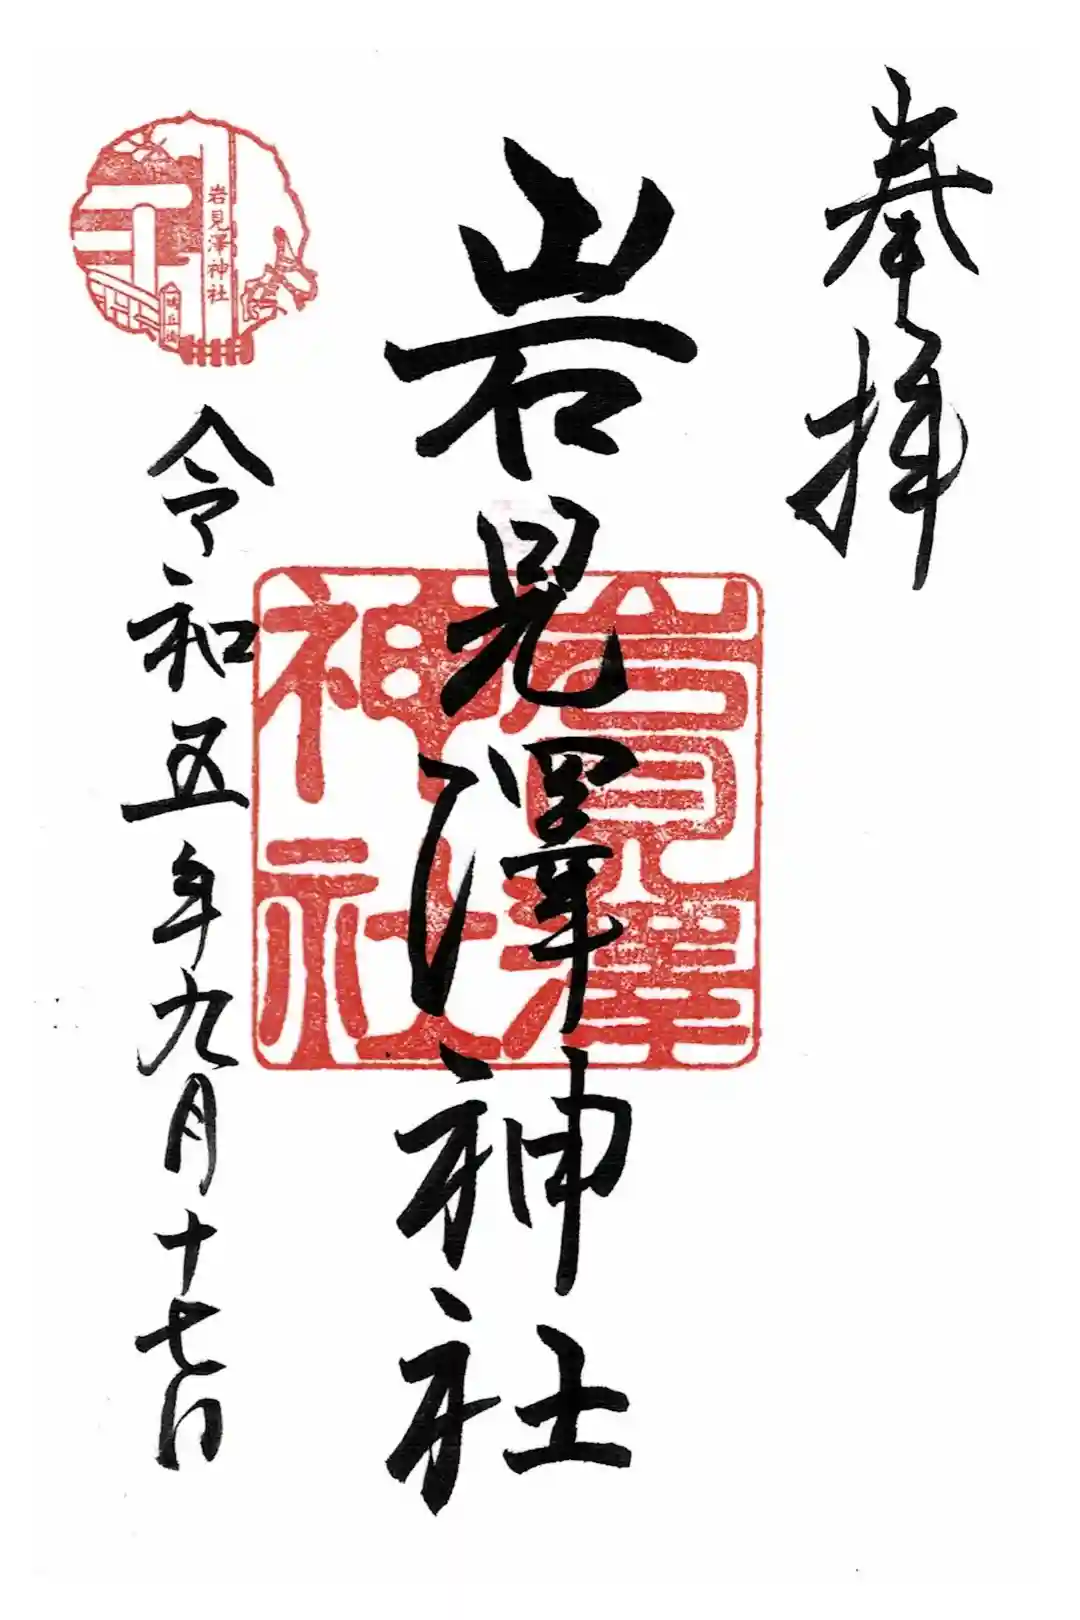 奉拝
岩見澤神社
岩見澤
神社
岩見澤神社
令和五年九月十七日